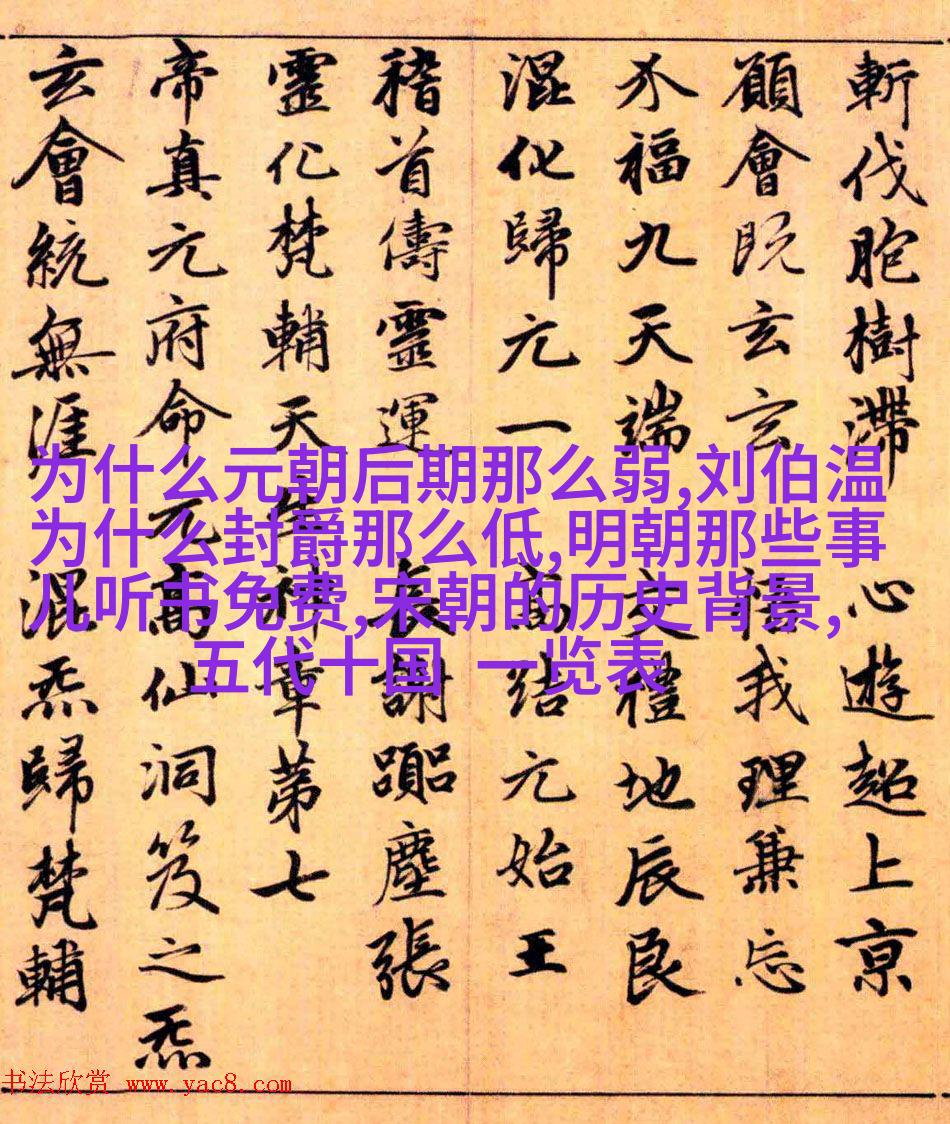 斬伐胞樹滯 心遊超上京
願會既玄玄 悟我理兼忘
福九天端 交禮地辰良
混化歸元一 高结元始王
稽首儔靈運 長謝躐塵張
靈化梵輔天 神章第七
帝真元府命元高仙洞笈之炁
玄會統無涯 混炁歸梵輔
为什么元朝后期那么弱,刘伯温
为什么封爵那么低,明朝那些事
儿听书免费,宋朝的历史背景,
五代十国 一览表
书法欣赏 www.yac8.com